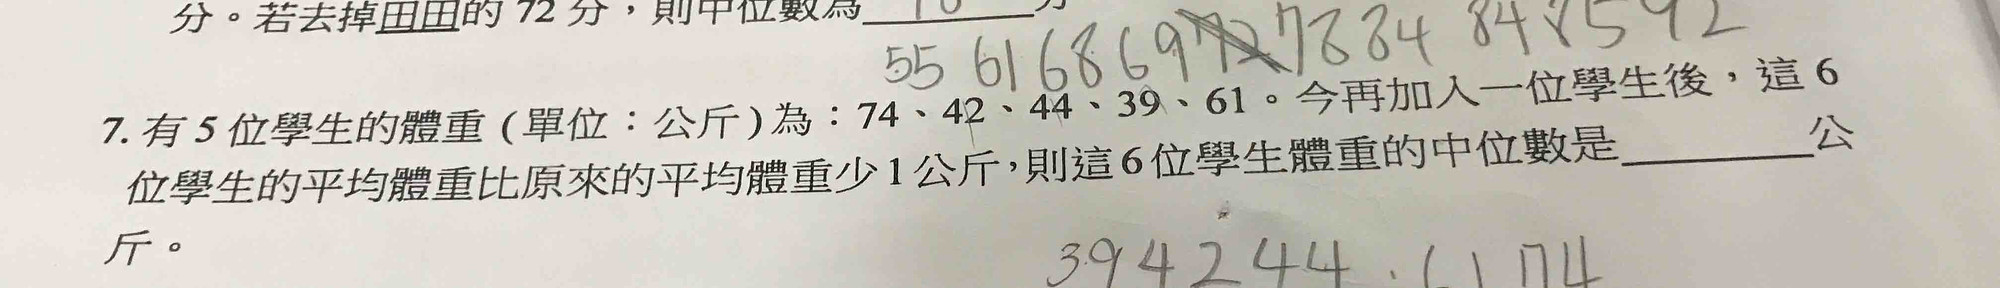 分。若去掉田田的 72 分，則中位數為
55 61 68 69 72 78 84 84 85 92
7. 有 5 位學生的體重 ( 單位：公斤 ) 為：74、42、44、39、61。今再加入一位學生後，這 6
位學生的平均體重比原來的平均體重少 1 公斤，則這 6 位學生體重的中位數是________公
斤。
39 42 44 . 61 74